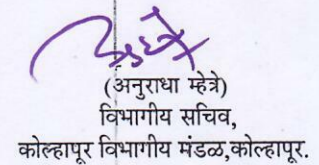 (अनुराधा म्हेत्रे)
विभागीय सचिव,
कोल्हापूर विभागीय मंडळ,कोल्हापूर.